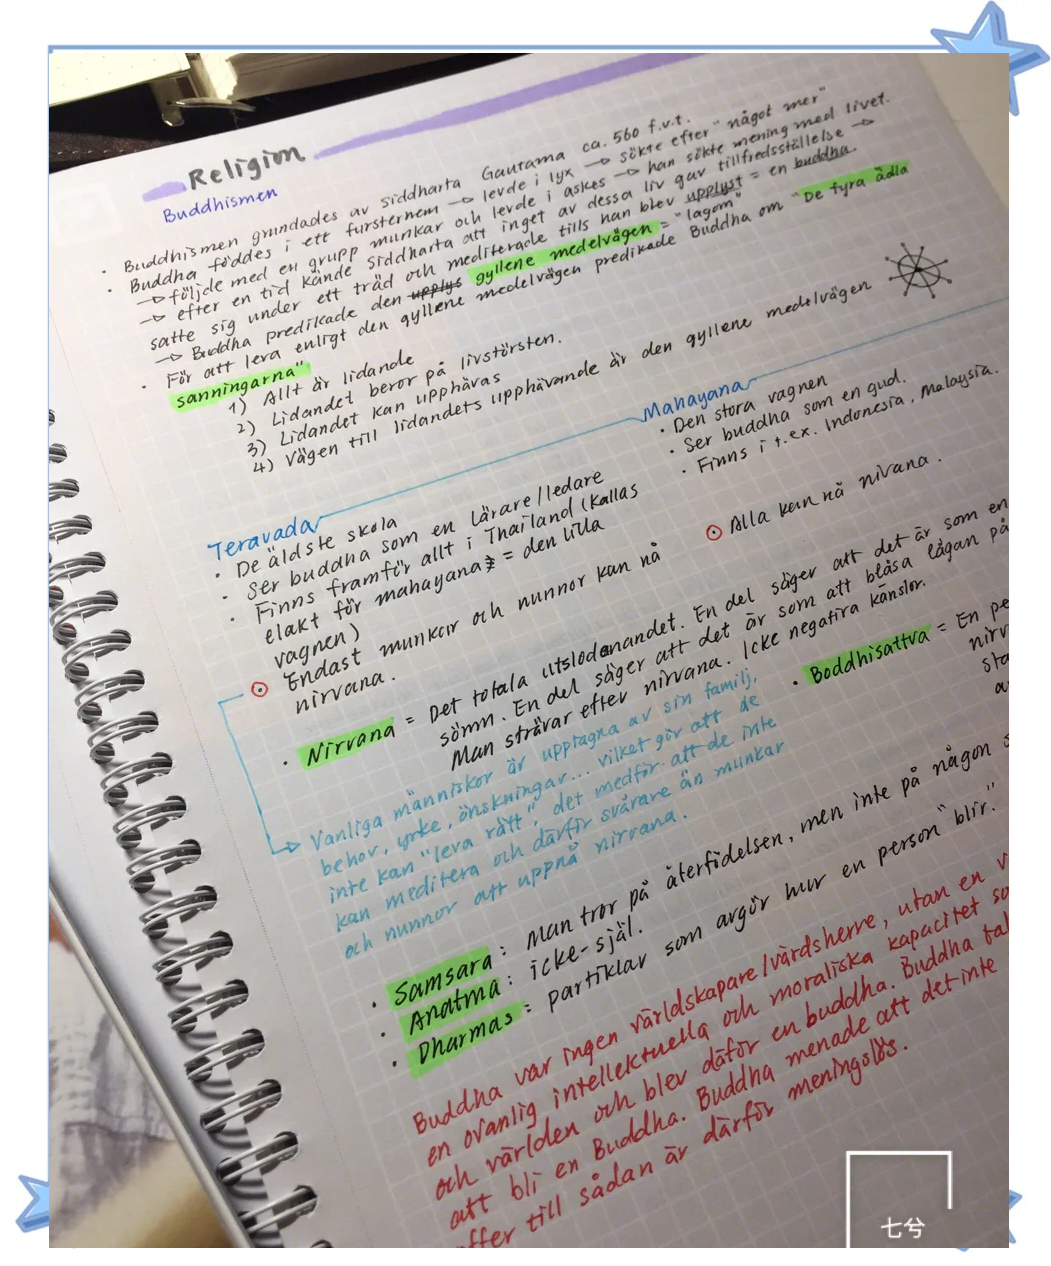 Religion
Buddhismen
· Buddhismen grundades av siddharta Gautama ca. 560 f.v.t.
· Buddha föddes i ett furstehem → levde i lyx → sökte efter "något mer"
→ följde med en grupp munkar och levde i askes → han sökte mening med livet.
→ efter en tid kände siddharta att inget av dessa liv gav tillfredsställelse →
satte sig under ett träd och mediterade tills han blev upplyst = en buddha.
→ Buddha predikade den upplys gyllene medelvägen = "lagom"
· För att leva enligt den gyllene medelvägen predikade Buddha om "De fyra ädla
sanningarna"
1) Allt är lidande
2) Lidandet beror på livstörsten.
3) Lidandet kan upphävas
4) Vägen till lidandets upphävande är den gyllene medelvägen
Mahayana
· Den stora vagnen
· Ser buddha som en gud.
· Finns i t.ex. Indonesia, Malaysia.
Alla kan nå nivana.
Teravada
· De äldste skola
· Ser buddha som en lärare/ledare
· Finns framför allt i Thailand (kallas
elakt för mahayana = den lilla
vagnen)
Endast munkar och nunnor kan nå
nirvana.
· Nirvana = Det totala utslodenandet. En del säger att det är som en
sömn. En del säger att det är som att blåsa lågan på
Man strävar efter nirvana. Icke negativa känslor.
· Boddhisattva = En pe
nirv
sta
a
Vanliga människor är upptagna av sin familj,
behov, yrke, önskningar... vilket gör att de
inte kan "leva rätt", det medför att de inte
kan meditera och därför svårare än munkar
och nunnor att uppnå nirvana.
· Samsara: Man tror på återfödelsen, men inte på någon s
· Anatma: icke-själ.
· Dharmas = partiklar som avgör hur en person "blir."
Buddha var ingen världskapare/världsherre, utan en v
en ovanlig intellektuella och moraliska kapacitet so
och världen och blev däför en buddha. Buddha tal
att bli en Buddha. Buddha menade att det inte
ffer till sådan är därför meningslös.
七兮